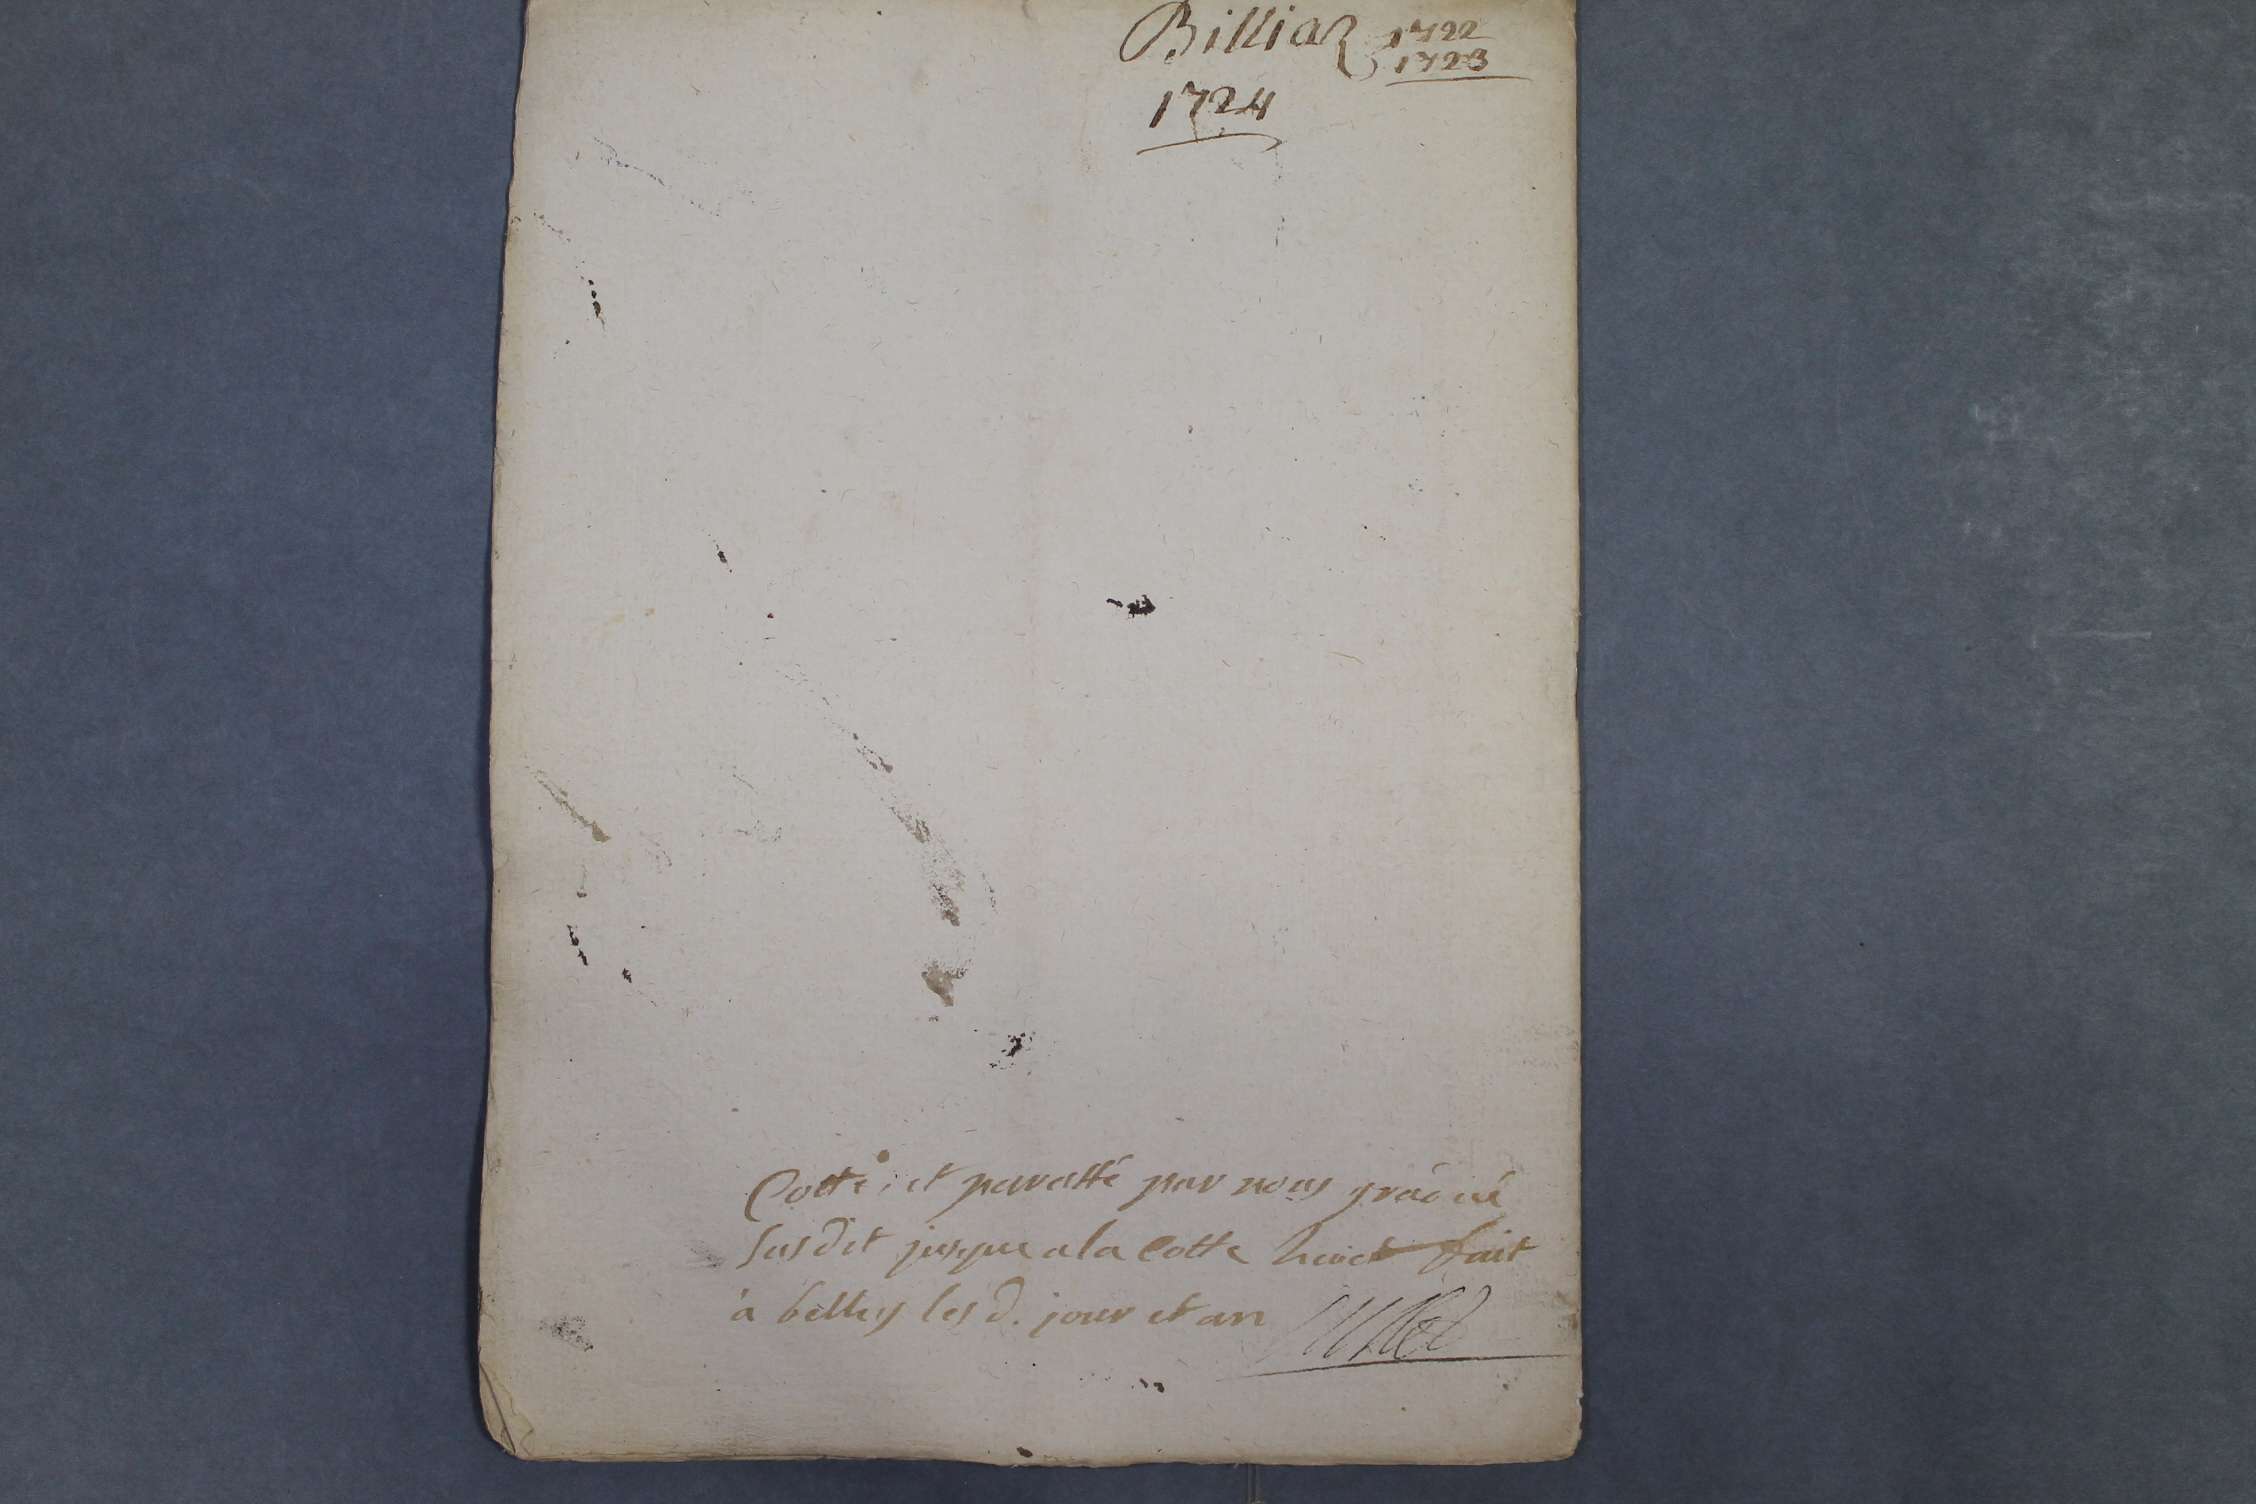 Billiaz 1722
1723
1724
Cotté, et paraffé par nous
susdit jusque a la Cotte huict fait
à belley lesd. jour et an